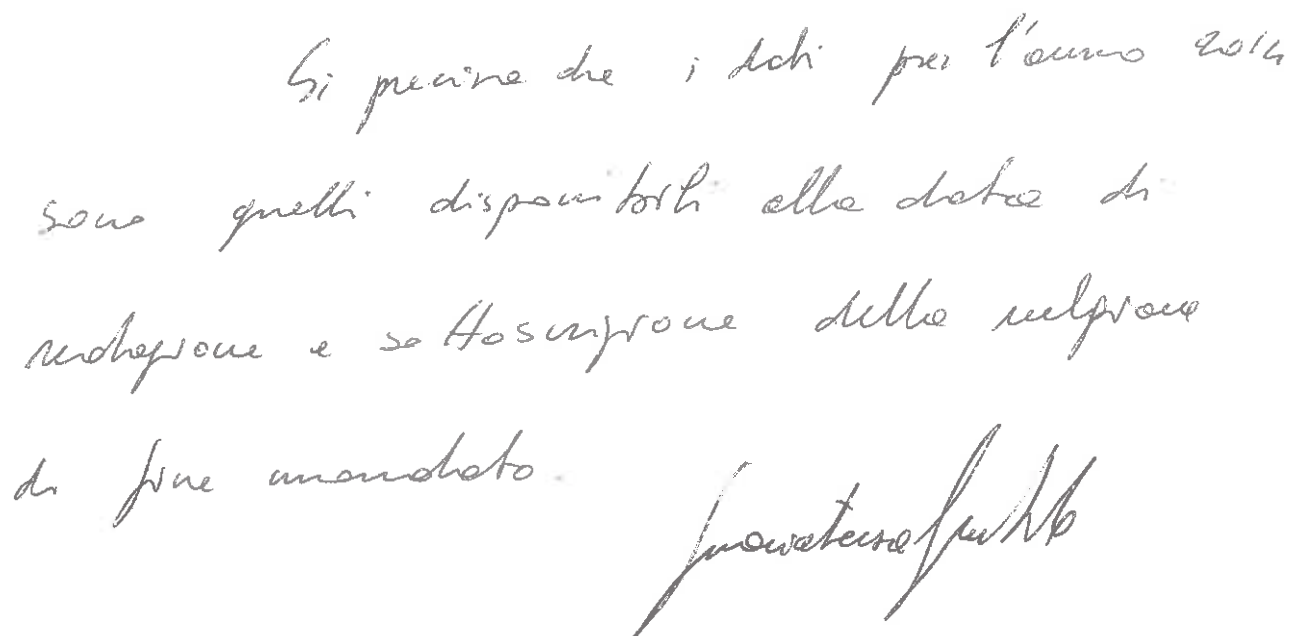 Si precisa che i dati per l'anno 2014
sono quelli disponibili alla data di
redazione e sottoscrizione della relazione
di fine mandato.